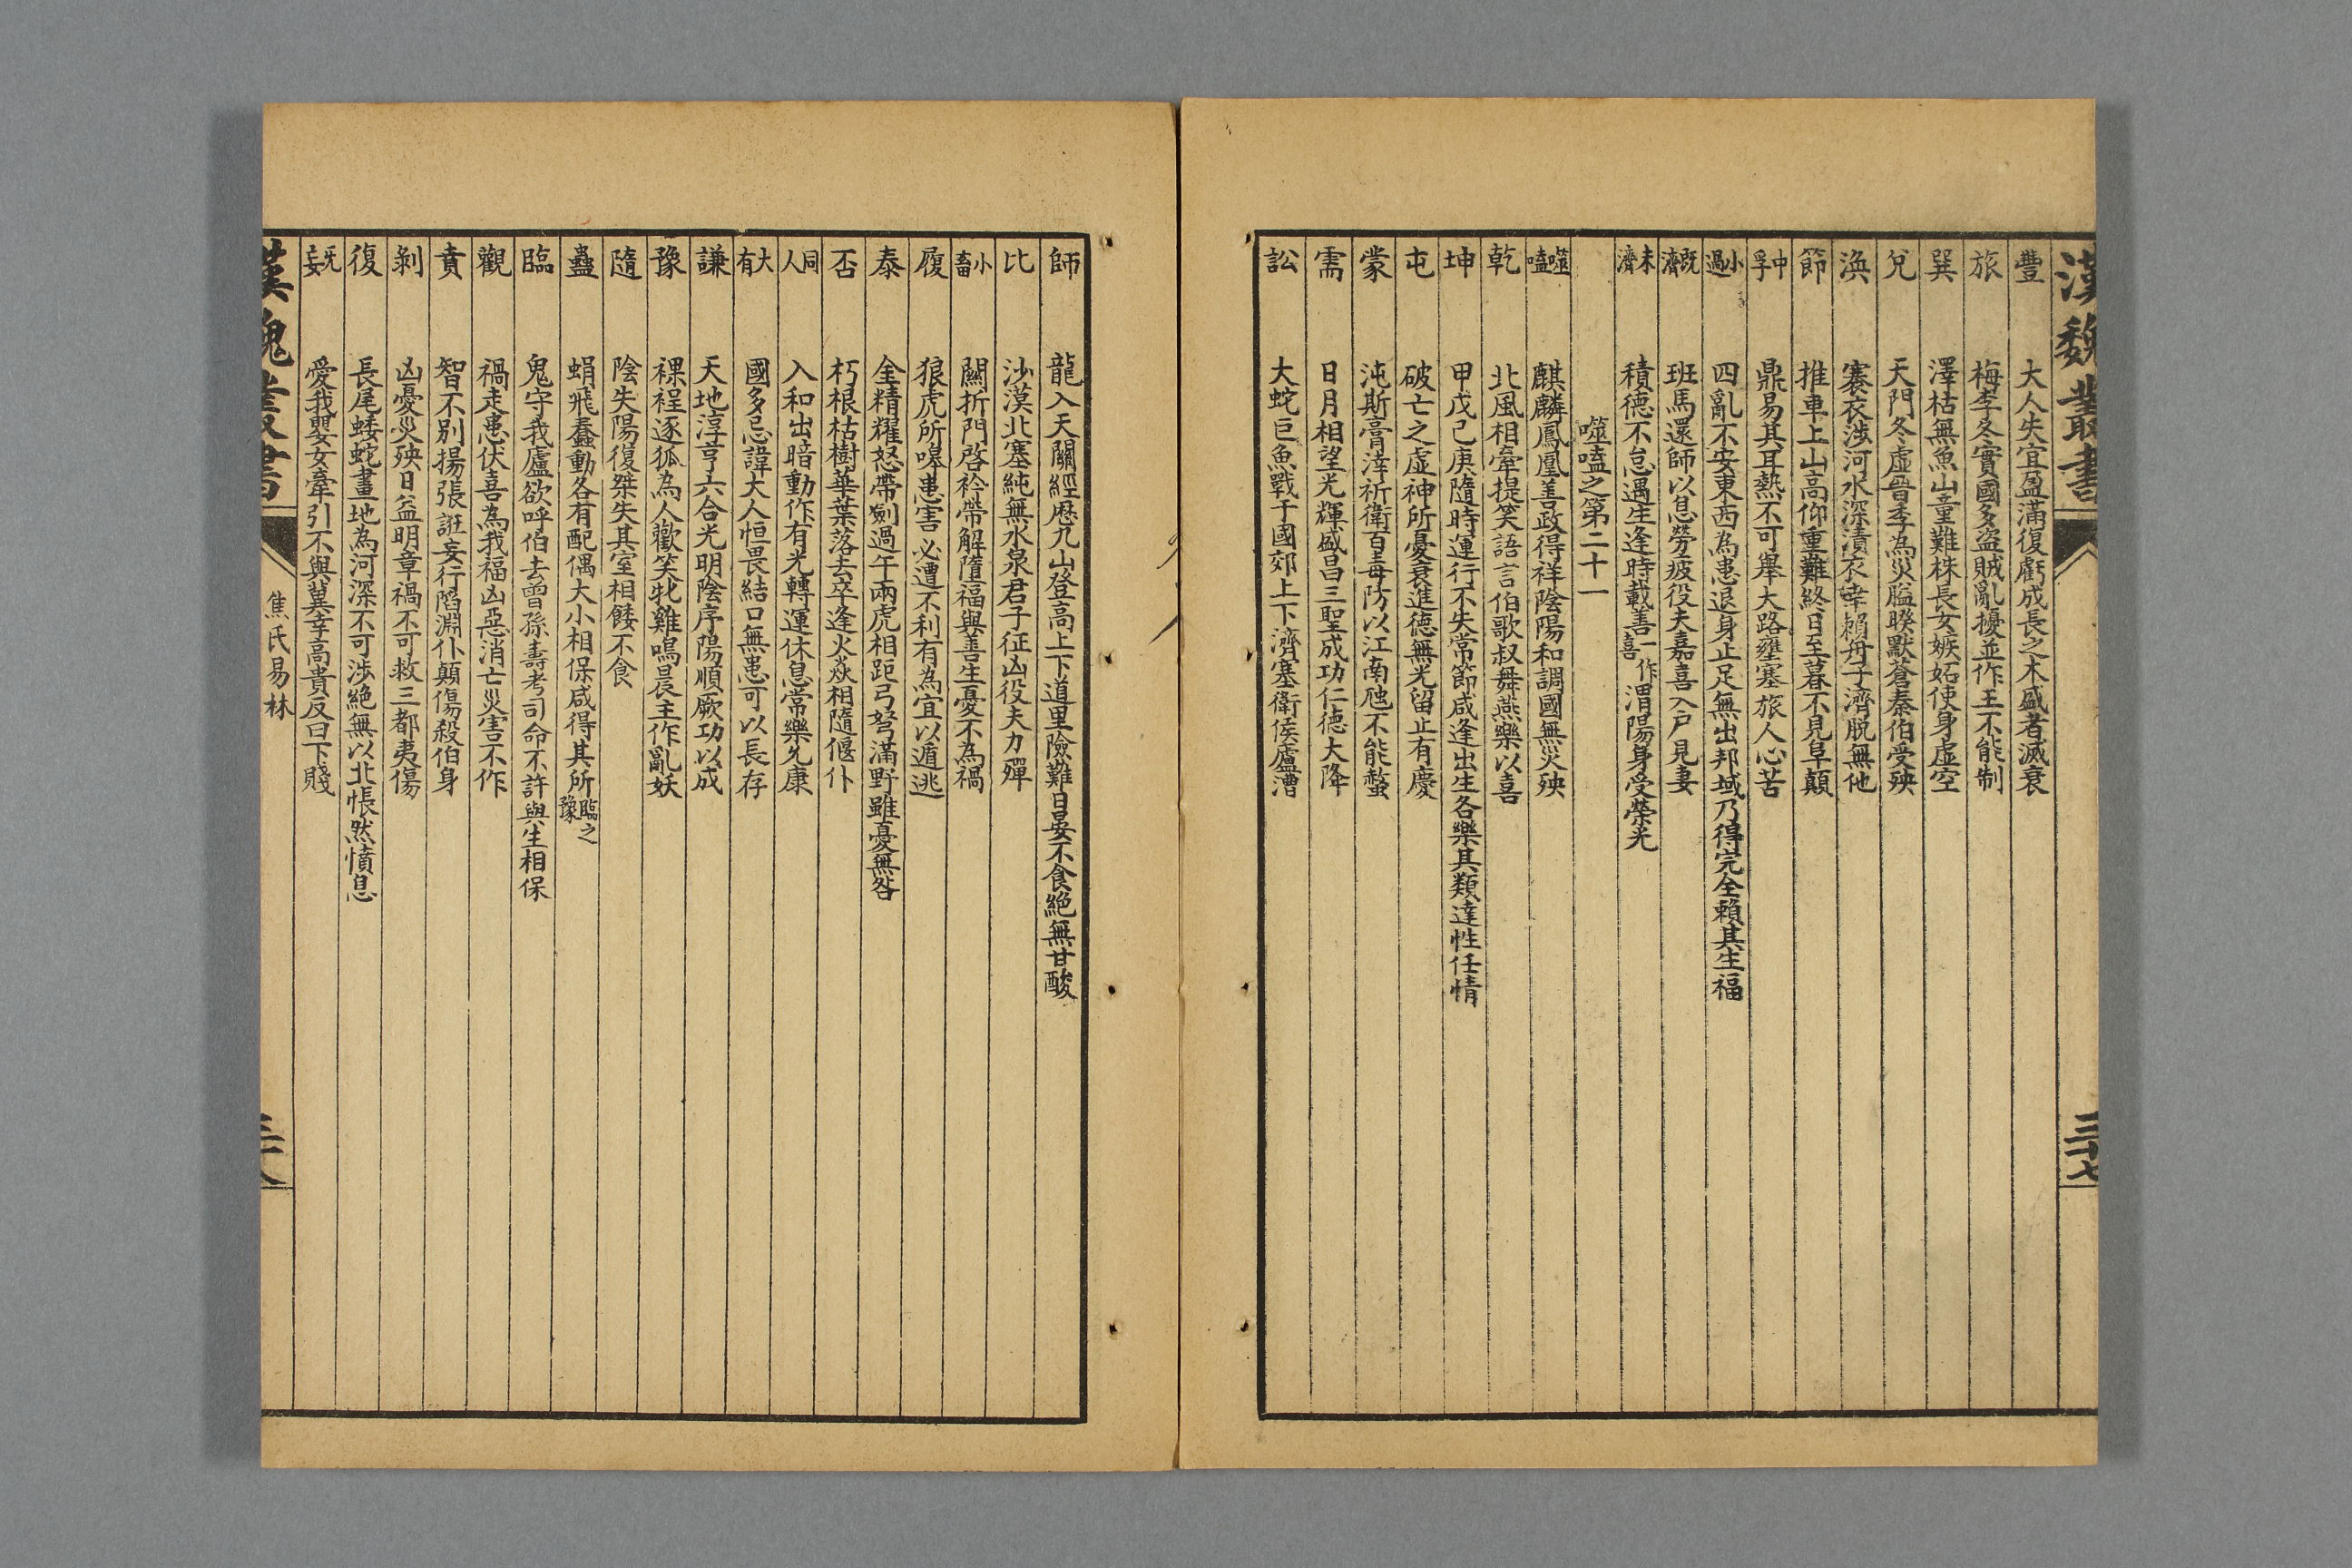 漢魏叢書
三十七
豐 大人失宜盈滿復虧成長之木盛者滅衰
旅 梅李冬實國多盜賊亂擾並作王不能制
巽 澤枯無魚山童難株長女嫉妬使身虛空
兌 天門冬虛晉季為災脇睽默蒼秦伯受殃
渙 褰衣涉河水深漬衣幸賴舟子濟脫無他
節 推車上山高仰重難終日至暮不見阜顛
中孚 鼎易其耳熱不可舉大路壅塞旅人心苦
小過 四亂不安東西為患退身止足無出邦域乃得完全賴其生福
既濟 班馬還師以息勞疲役夫嘉喜入戶見妻
未濟 積德不怠遇生逢時載善一作喜渭陽身受榮光
噬嗑之第二十一
噬嗑 麒麟鳳凰善政得祥陰陽和調國無災殃
乾 北風相牽提笑語言伯歌叔舞燕樂以喜
坤 甲戊己庚隨時運行不失常節咸逢出生各樂其類達性任情
屯 破亡之虛神所憂哀進德無光留止有慶
蒙 沌斯膏滓祈衛百毒防以江南虺不能螫
需 日月相望光輝盛昌三聖成功仁德大降
訟 大蛇巨魚戰于國郊上下濟塞衛侯廬漕
師 龍入天關經歷九山登高上下道里險難日晏不食絕無甘酸
比 沙漠北塞純無水泉君子征凶役夫力殫
小畜 關折門啓衿帶解墮福與善生憂不為禍
履 狼虎所嗥患害必遭不利有為宜以遁逃
泰 金精耀怒帶劍過午兩虎相距弓弩滿野雖憂無咎
否 朽根枯樹華葉落去卒逢火焱相隨偃仆
同人 入和出暗動作有光轉運休息常樂允康
大有 國多忌諱大人恒畏結口無患可以長存
謙 天地淳亨六合光明陰序陽順厥功以成
豫 裸裎逐狐為人歡笑牝雞鳴晨主作亂妖
隨 陰失陽復桀失其室相餧不食
蠱 蜎飛蠢動各有配偶大小相保咸得其所臨之豫
臨 鬼守我廬欲呼伯去曾孫壽考司命不許與生相保
觀 禍走患伏喜為我福凶惡消亡災害不作
賁 智不別揚張誑妄行陷淵仆顛傷殺伯身
剝 凶憂災殃日益明章禍不可救三都夷傷
復 長尾蜲蛇畫地為河深不可涉絕無以北悵然憤息
无妄 愛我嬰女牽引不與冀幸高貴反曰下賤
漢魏叢書
焦氏易林
三十八